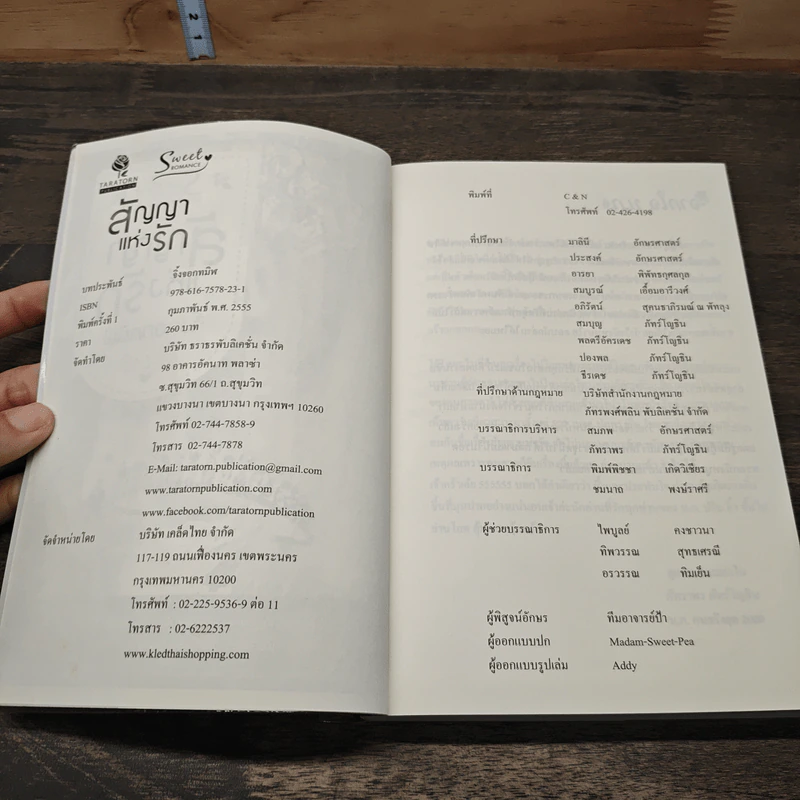 2
1
TARATORN
PUBLICATION
Sweet
ROMANCE
สัญญา
แห่งรัก
บทประพันธ์ จิ้งจอกทมิฬ
ISBN 978-616-7578-23-1
พิมพ์ครั้งที่ 1 กุมภาพันธ์ พ.ศ. 2555
ราคา 260 บาท
จัดทำโดย บริษัท ธราธรพับลิเคชั่น จำกัด
98 อาคารอัคนาท พลาซ่า
ซ.สุขุมวิท 66/1 ถ.สุขุมวิท
แขวงบางนา เขตบางนา กรุงเทพฯ 10260
โทรศัพท์ 02-744-7858-9
โทรสาร 02-744-7878
E-Mail: taratorn.publication@gmail.com
www.taratornpublication.com
www.facebook.com/taratornpublication
จัดจำหน่ายโดย บริษัท เคล็ดไทย จำกัด
117-119 ถนนเฟื่องนคร เขตพระนคร
กรุงเทพมหานคร 10200
โทรศัพท์ : 02-225-9536-9 ต่อ 11
โทรสาร : 02-6222537
www.kledthaishopping.com
พิมพ์ที่ C & N
โทรศัพท์ 02-426-4198
ที่ปรึกษา มาลินี อักษรศาสตร์
ประสงค์ อักษรศาสตร์
อารยา พิพัทธกุศลกุล
สมบูรณ์ เอื้อมอารีวงศ์
อภิรัตน์ สุคนธาภิรมณ์ ณ พัทลุง
สมบุญ ภัทร์โญธิน
พลตรีอัครเดช ภัทร์โญธิน
ปองพล ภัทร์โญธิน
ธีรเดช ภัทร์โญธิน
ที่ปรึกษาด้านกฎหมาย บริษัทสำนักงานกฎหมาย
ภัทรพงศ์พลิน พับลิเคชั่น จำกัด
บรรณาธิการบริหาร สมภพ อักษรศาสตร์
ภัทราพร ภัทร์โญธิน
บรรณาธิการ พิมพ์พิชชา เกิดวิเชียร
ชมนาถ พงษ์ราศรี
ผู้ช่วยบรรณาธิการ ไพบูลย์ คงชาวนา
ทิพวรรณ สุทธเศรณี
อรวรรณ ทิมเย็น
ผู้พิสูจน์อักษร ทีมอาจารย์ป้า
ผู้ออกแบบปก Madam-Sweet-Pea
ผู้ออกแบบรูปเล่ม Addy